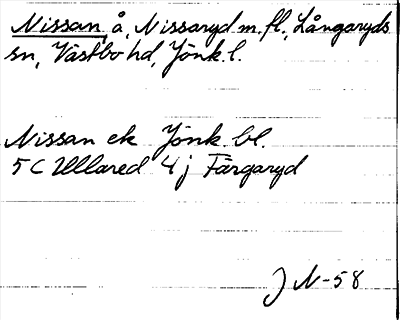 Nissan, å, Nissaryd m.fl., Långaryds
sn, Västbo hd, Jönk. l.
Nissan ek Jönk. bl.
5 C Ullared 4 j Färgaryd
J N-58